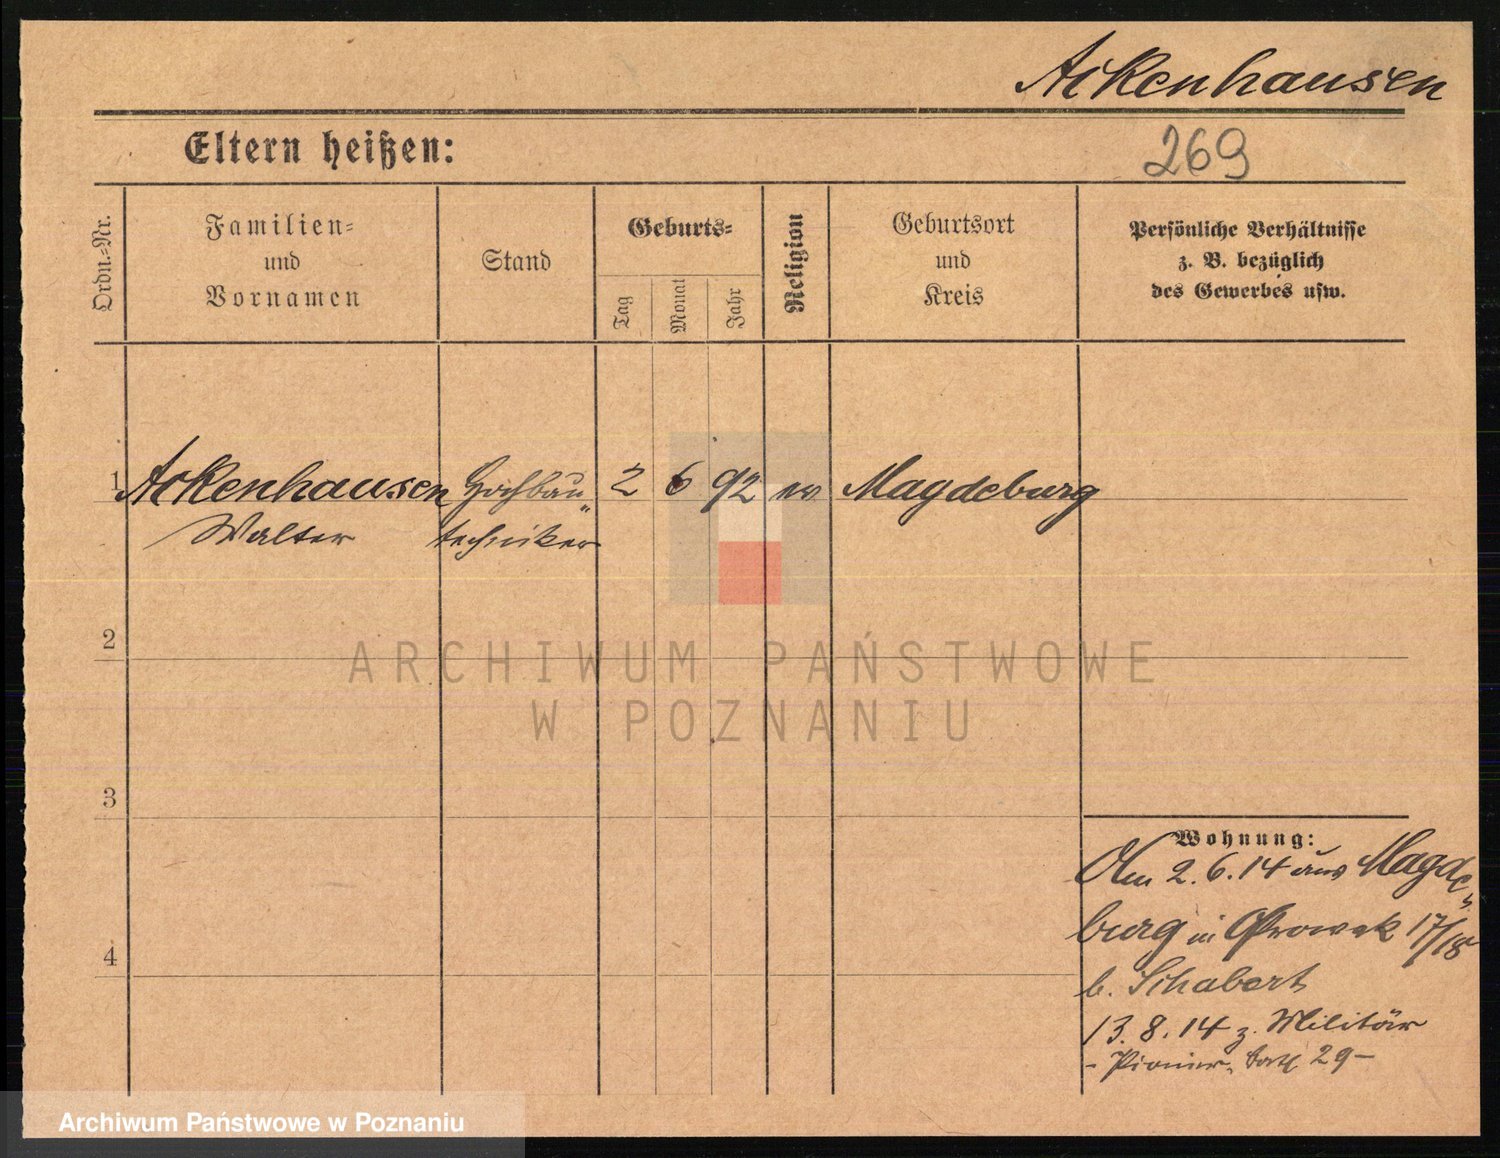 Ackenhausen
Eltern heißen:
269
Ordn.-Nr.
Familien-
und
Vornamen
Stand
Geburts-
Tag
Monat
Jahr
Religion
Geburtsort
und
Kreis
Persönliche Verhältnisse
z. B. bezüglich
des Gewerbes usw.
1 Ackenhausen Hochbau„ 2 6 92 ev. Magdeburg
Walter techniker
2
3
4
Wohnung:
Am 2.6.14 aus Magde„
burg in 17/18
b. Schabert
13.8.14 z. Militär
- Pionier. Batl 29 -
ARCHIWUM PAŃSTWOWE
W POZNANIU
Archiwum Państwowe w Poznaniu